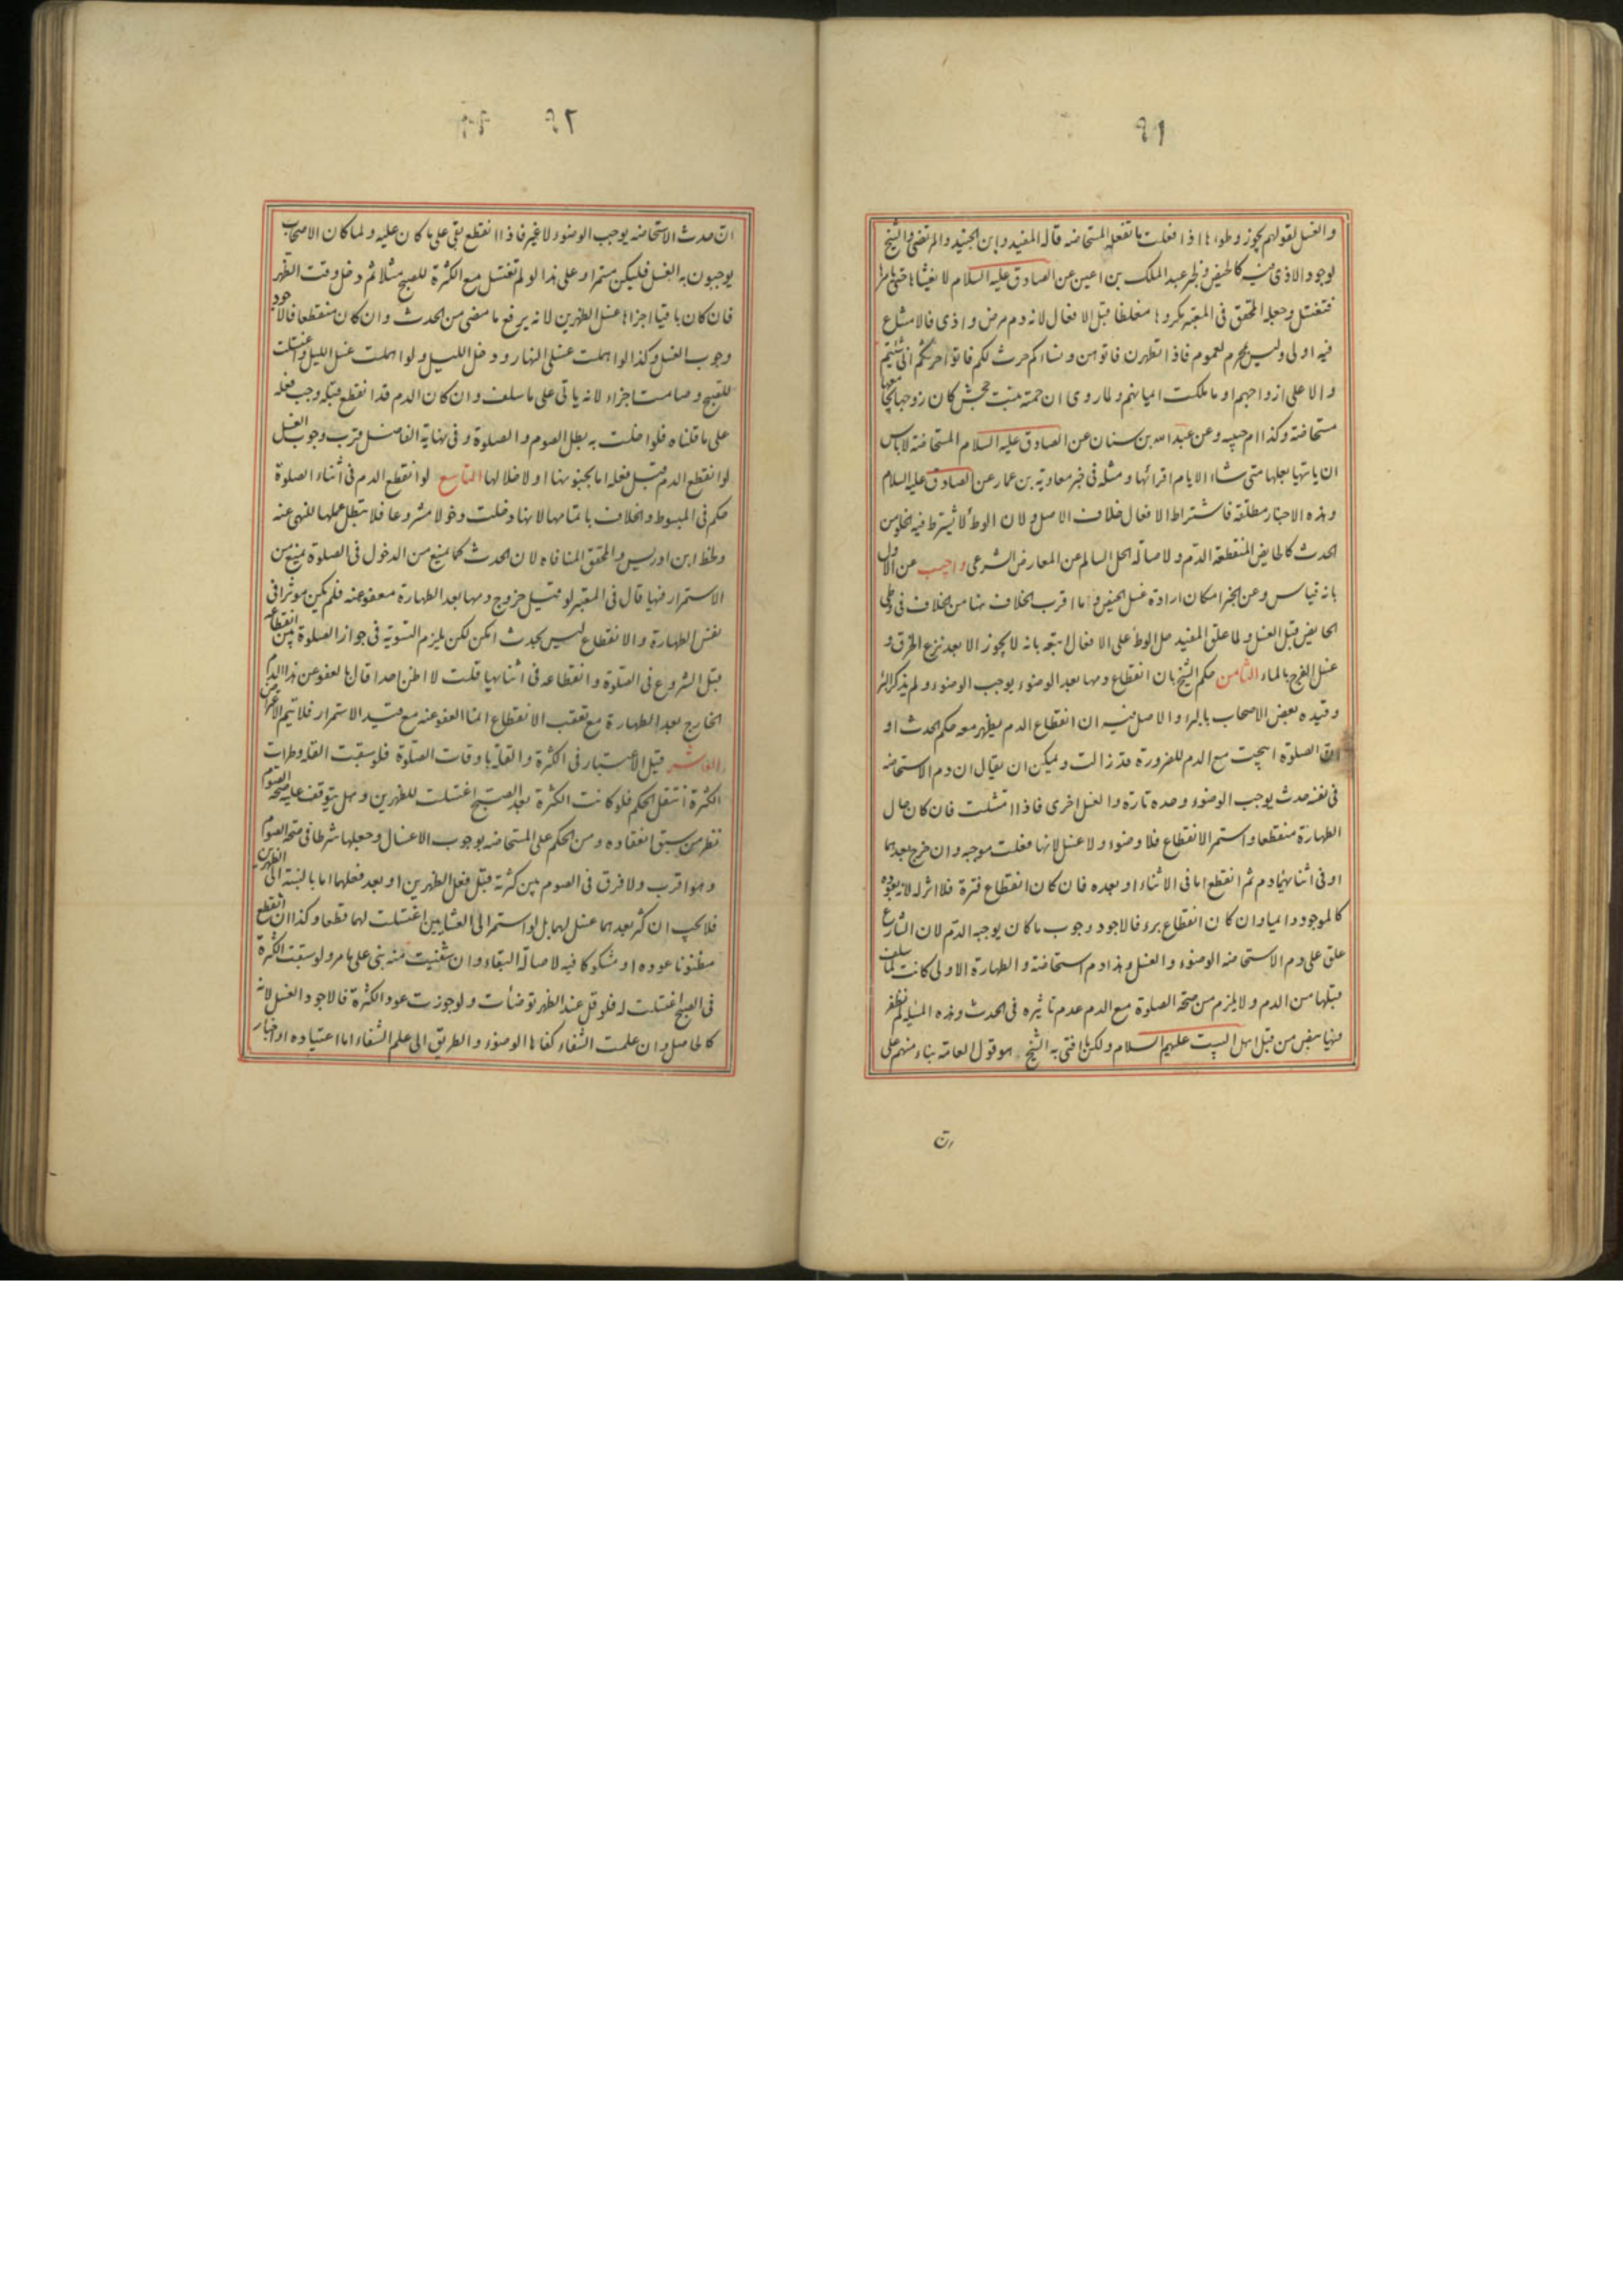 ٩١
والغسل لقولهم يجوز وطوءها اذا فعلت ما تفعله المستحاضه قاله المفيد وابن الجنيد والمرتضى والشيخ
لوجود الاذى فيه كالحيض ولخبر عبد الملك بن اعين عن الصادق عليه السلام لا يغشاها حتى يامرها
فتغتسل وجعله المحقق فى المعتبر مكروها مغلظا قبل الافعال لانه دم مرض واذى فالامتناع
فيه اولى وليس بمحرم لعموم فاذا تطهرن فاتوهن ونساءكم حرث لكم فاتوا حرثكم انى شئتم
والا على ازواجهم او ما ملكت ايمانهم ولما روى ان حمنه بنت جحش كان زوجها يجامعها
مستحاضة وكذا ام حبيبه وعن عبد الله بن سنان عن الصادق عليه السلام المستحاضة لا باس
ان ياتيها بعلها متى شاء الا ايام اقرائها ومثله فى خبر معاوية بن عمار عن الصادق عليه السلام
وهذه الاخبار مطلقة فاشتراط الافعال خلاف الاصل ولان الوطء لا يشترط فيه الخلو من
الحدث كالحايض المنقطعة الدم ولاصالة الحل السالم عن المعارض الشرعى واجيب عن الاول
بانه قياس وعن الخبر امكان ارادة غسل الحيض وما اقرب الخلاف هنا من الخلاف فى وطى
الحايض قبل الغسل ولما علق المفيد حل الوطء على الافعال اتبعه بانه لا يجوز الا بعد نزع الخرق و
غسل الفرج بالماء الثامن حكم الشيخ بان انقطاع دمها بعد الوضوء يوجب الوضوء ولم يذكر البرء
وقيده بعض الاصحاب بالبرء والاصل فيه ان انقطاع الدم يظهر معه حكم الحدث او
ان الصلوة ابيحت مع الدم للضرورة وقد زالت ويمكن ان يقال ان دم الاستحاضه
فى نفسه حدث يوجب الوضوء وحده تارة والغسل اخرى فاذا امتثلت فان كان حال
الطهارة منقطعا واستمر الانقطاع فلا وضوء ولا غسل لانها فعلت موجبه وان خرج بعدهما
او فى اثنائهما دم ثم انقطع اما فى الاثناء او بعده فان كان انقطاع فترة فلا اثر له لانه بعوده
كالموجود دائما وان كان انقطاع برء فالاجود وجوب ما كان يوجبه الدم لان الشارع
علق على دم الاستحاضه الوضوء والغسل وهذا دم استحاضة والطهارة الاولى كانت لما سلف
قبلها من الدم ولا يلزم من صحة الصلوة مع الدم عدم تاثيره فى الحدث وهذه المسئلة لم نظفر
فيها بنص من قبل اهل البيت عليهم السلام ولكن ما افتى به الشيخ هو قول العامة بناء منهم على
ان
٩٢
ان حدث الاستحاضه يوجب الوضوء لا غير فاذا انقطع بقى على ما كان عليه ولما كان الاصحاب
يوجبون به الغسل فليكن مستمرا وعلى هذا لو لم تغتسل مع الكثرة للصبح مثلا ثم دخل وقت الظهر
فان كان باقيا اجزاها غسل الظهرين لانه يرفع ما مضى من الحدث وان كان منقطعا فالاجود
وجوب الغسل وكذا لو اهملت غسلى النهار ودخل الليل ولو اهملت غسل الليل واغتسلت
للصبح وصامت اجزاء لانه ياتى على ما سلف وان كان الدم قد انقطع قبله وجب فعله
على ما قلناه فلو اخلت به بطل الصوم والصلوة وفى نهاية الفاضل قرب وجوب الغسل
لو انقطع الدم قبل فعله اما لجنونها او لاخلالها التاسع لو انقطع الدم فى اثناء الصلوة
حكم فى المبسوط والخلاف باتمامها لانها دخلت دخولا مشروعا فلا تبطل عملها للنهى عنه
وطعن ابن ادريس والمحقق المنافاه لان الحدث كما يمنع من الدخول فى الصلوة يمنع من
الاستمرار فيها قال فى المعتبر لو قيل خروج دمها بعد الطهارة معفو عنه فلم يكن موثرا فى
نقض الطهارة والانقطاع ليس بحدث امكن لكن يلزم التسوية فى جواز الصلوة بين انقطاعه
قبل الشروع فى الصلوة وانقطاعه فى اثنائها قلت لا اظن احدا قال بالعفو عن هذا الدم
الخارج بعد الطهارة مع تعقب الانقطاع انما العفو عنه مع قيد الاستمرار فلا يتم الاعتراض
العاشر قيل الاعتبار فى الكثرة والقلة باوقات الصلوة فلو سبقت القلة وطرات
الكثرة انتقل الحكم فلو كانت الكثرة بعد الصبح اغتسلت للظهرين وهل يتوقف عليه صحة الصوم
نظر من سبق انعقاده ومن الحكم على المستحاضه بوجوب الاغسال وجعلها شرطا فى صحة الصوم
وهو اقرب ولا فرق فى الصوم بين كثرته قبل فعل الظهرين او بعد فعلهما اما بالنسبة الى الظهرين
فلا يجب ان كثر بعدهما غسل لهما بل لو استمر الى العشايين اغتسلت لهما قطعا وكذا ان انقطع
مظنونا عوده او مشكوكا فيه لاصالة البقاء وان شفيت منه بنى على ما مر ولو سبقت الكثرة
فى الصبح اغتسلت له فلو قل عند الظهر توضأت ولو جوزت عود الكثرة فالاجود الغسل لانه
كالحاصل وان علمت الشفاء كفاها الوضوء والطريق الى علم الشفاء اما اعتياده او اخبار